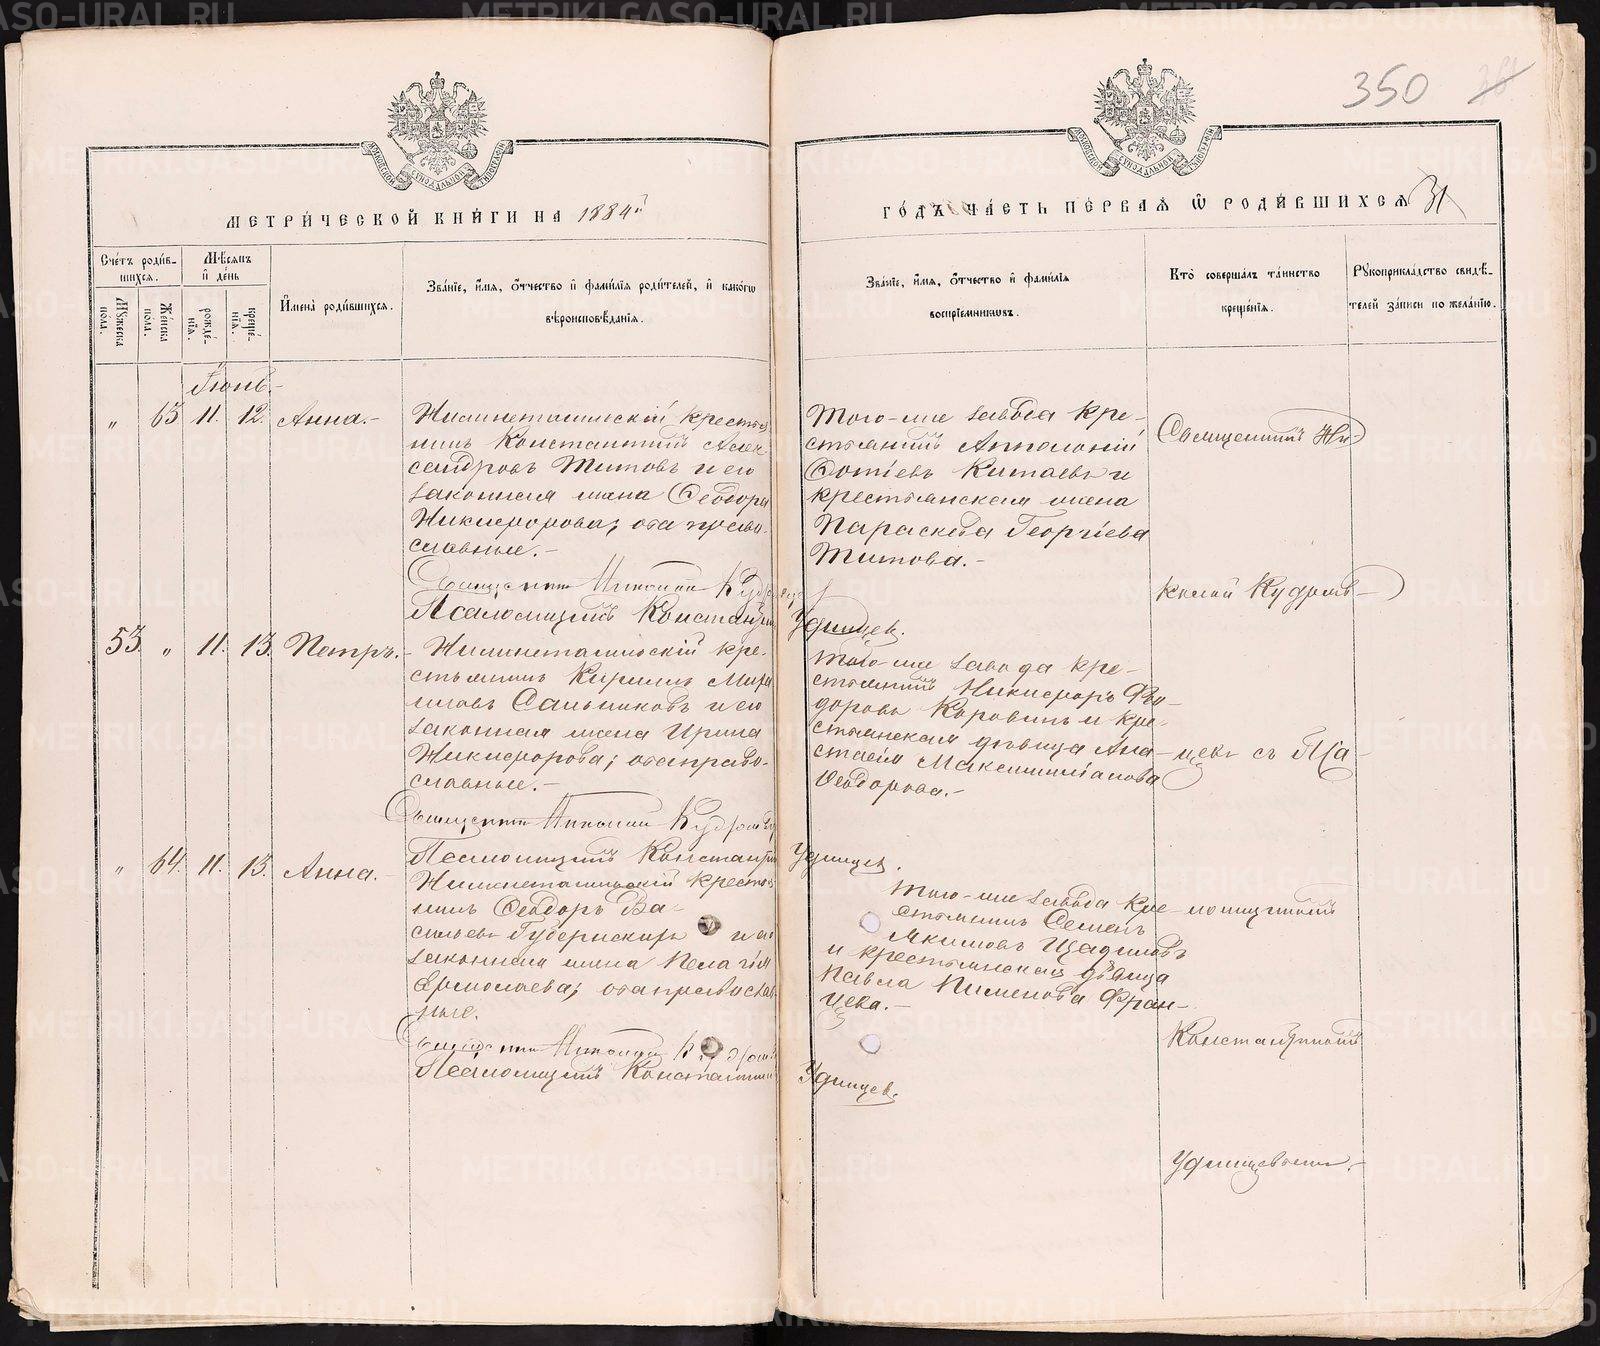 350
МЕТРИ́ЧЕСКОЙ КНИ́ГИ НА 1884й
ГО́ДЪ ЧА́СТЬ ПЕ́РВАѦ Ѡ РОДИ́ВШИХСѦ 31
Сче́тъ роди́в-
шихся.
Мѣсяцъ
и де́нь
Му́жеска по́ла.
Же́нска по́ла.
рожде́-
нія.
креще́-
нія.
Имена̀ роди́вшихся.
Зва́ніе, и́мя, о́тчество и фами́лія роди́телей, и како́гѡ
вѣроисповѣ́данія.
Зва́ніе, и́мя, о́тчество и фами́лія
воспріе́мниковъ.
Кто̀ соверша́лъ та́инство
креще́нія.
Рꙋкоприкла́дство свидѣ́-
телей за́писи по жела́нію.
Іюнь.-
" 63 11. 12. Анна.-
Нижнетагильскій крестья
нинъ Константинъ Алек
сандровъ Титовъ и его
законная жена Ѳеодора
Никифорова; оба право-
славные.-
Священникъ Николай Кудрявцев
Псаломщикъ Константин Удинцев.
Того-же завода кре-
стьянинъ Апполоній
Фотіевъ Китаевъ и
крестьянская жена
Параскева Георгіева
Титова.-
Священникъ Ни-
колай Кудряв-
53. " 11. 13. Петръ.-
Нижнетагильскій кре-
стьянинъ Кириллъ Миха
иловъ Сальниковъ и его
законная жена Ирина
Никифорова; оба право-
славные.-
Священникъ Николай Кудрявц
Псаломщикъ Константин Удинцев.
Того-же завода кре-
стьянинъ Никифоръ Ѳео-
доровъ Коровинъ и кре-
стьянская дѣвица Ана-
стасія Максимиліанова
Ѳеодорова.-
цевъ съ Пса-
" 64. 11. 13. Анна.-
Нижнетагильскій крестья
нинъ Ѳеодоръ Ва-
сильевъ Губернскихъ и его
законная жена Пелагія
Ермолаева; оба православ
ные.
Священникъ Николай Кудрявц
Псаломщикъ Константин Удинцев.
Того-же завода кре-
стьянинъ Семенъ
Якимовъ Щадиловъ
и крестьянская дѣвица
Павла Пименова Фран-
цева.-
ломщикомъ
Константиномъ
Удинцевымъ.-
METRIKI.GASO-URAL.RU